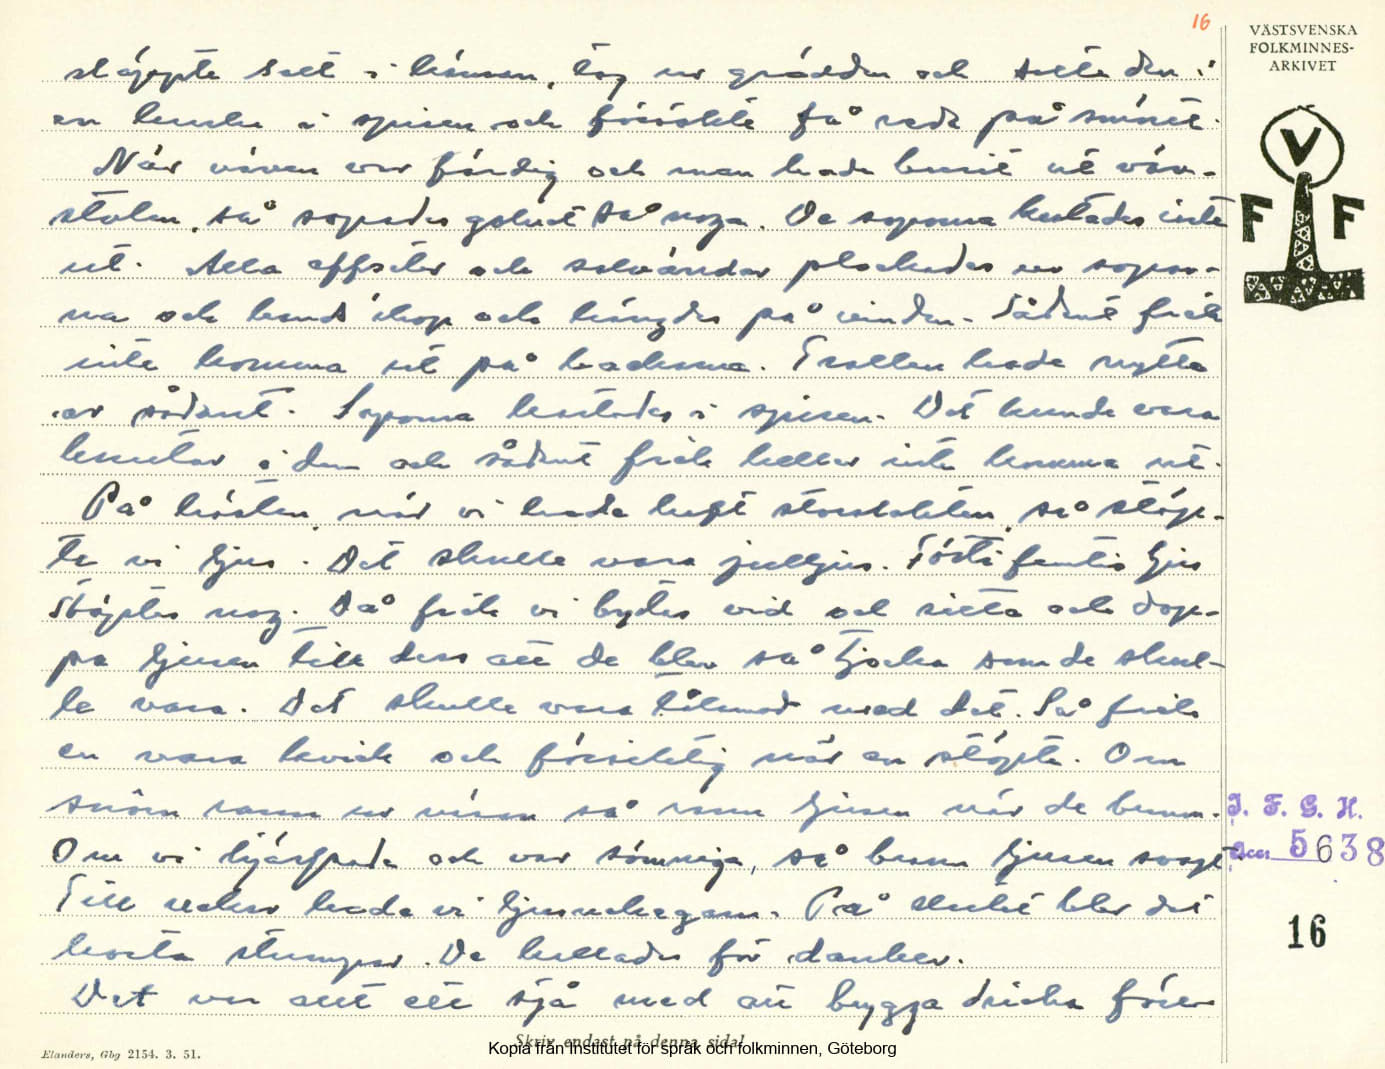 16
VÄSTSVENSKA
FOLKMINNES-
ARKIVET
V
F F
släppte salt i kärnan, tog ur grädden och satte den i
en kruka i spisen och försökte få reda på smöret.
När väven var färdig och man hade burit ut väv-
stolen, så sopades golvet så noga. De soporna kastades inte
ut. Alla effsetor och solvändar plockades ur sopor-
na och bands ihop och hängdes på vinden. Sådant fick
inte komma ut på backarna. Trollen hade nytta
av sådant. Soporna kastades i spisen. Det kunde vara
knutar i dem och sådant fick heller inte komma ut.
På hösten, när vi hade haft storslakten, så stöp-
te vi ljus. Det skulle vara julljus. Förti femtio ljus
stöptes nog. Då fick vi bytas vid och sitta och dop-
pa ljusen till dess att de blev så tjocka som de skul-
le vara. Det skulle vara tålamod med det. Så fick
en vara kvick och försiktig när en stöpte. Om
snöen rann ur näsan så rann ljusen när de brunn.
Om vi hjärpade och var sömniga, så brann ljusen svagt
Till vekar hade vi ljusvekegarn. På slutet blev det
korta stumpar. De kallades för dankar.
Det var allt ett sjå med att brygga dricka förr
I. F. G. H.
Acc: 5638
16
Skriv endast på denna sida!
Kopia från Institutet för språk och folkminnen, Göteborg
Elanders, Gbg 2154. 3. 51.